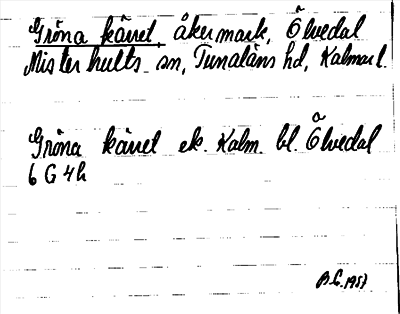 Gröna kärret, åkermark, Ölvedal
Misterhults sn, Tunaläns hd, Kalmar l.
Gröna kärret ek. Kalm. bl. Ölvedal
6 G 4h
1957